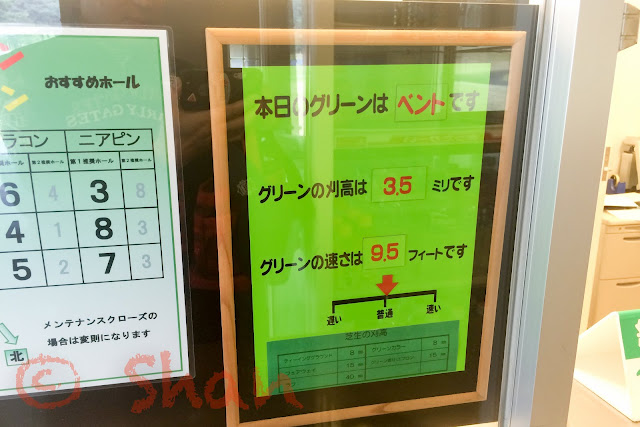 おすすめホール
ラコン ニアピン
ホール 第2推奨ホール 第1推奨ホール 第2推奨ホール
6 4 3 8
4 1 8 3
5 2 7 3
メンテナンスクローズの
場合は変則になります
北
本日のグリーンは ベント です
グリーンの刈高は 3.5 ミリです
グリーンの速さは 9.5 フィートです
遅い 普通 速い
芝生の刈高
© Shan